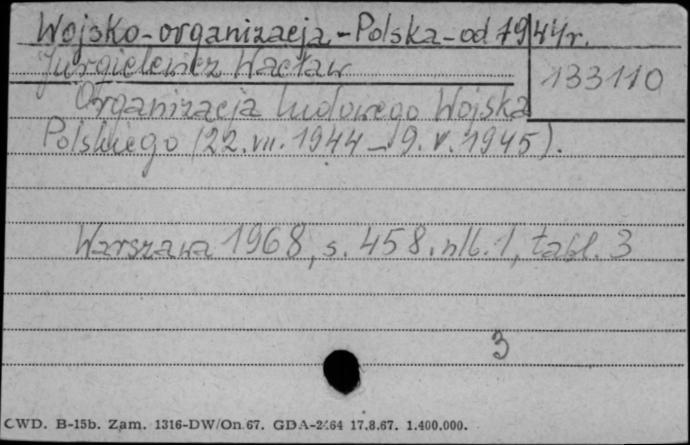 Wojsko-organizacja-Polska-od 1944r.
Jurgielewicz Wacław
133110
Organizacja ludowego Wojska
Polskiego (22.VII.1944 - 9.V.1945).
Warszawa 1968, s. 458. nlb. 1, tabl. 3
3
CWD. B-15b. Zam. 1316-DW/On 67. GDA-2464 17.8.67. 1.400.000.